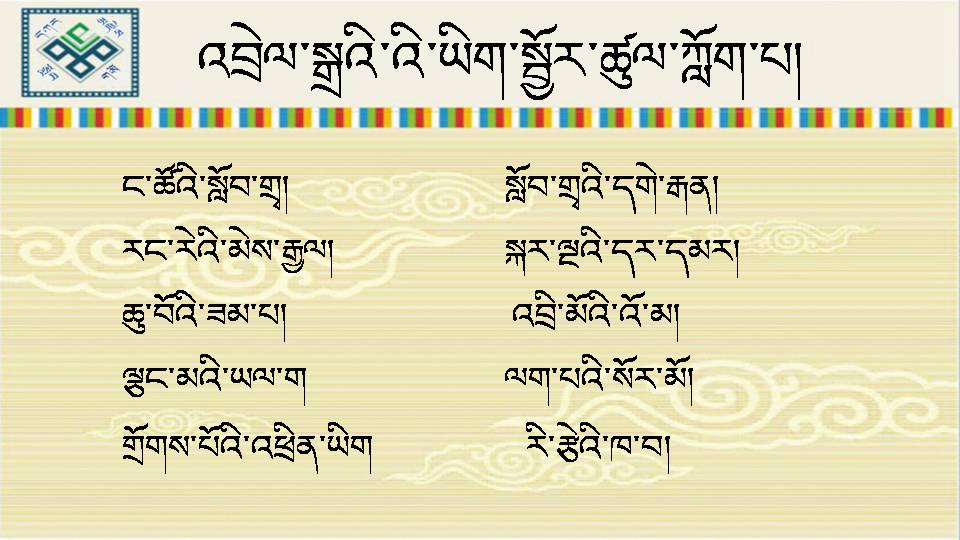 འབྲེལ་སྒྲའི་འི་ཡིག་སྦྱོར་ཚུལ་ཀློག་པ།
ང་ཚོའི་སློབ་གྲྭ། སློབ་གྲྭའི་དགེ་རྒན།
རང་རེའི་མེས་རྒྱལ། སྐར་ལྔའི་དར་དམར།
ཆུ་བོའི་ཟམ་པ། འབྲི་མོའི་འོ་མ།
ལྕང་མའི་ཡལ་ག ལག་པའི་སོར་མོ།
གྲོགས་པོའི་འཕྲིན་ཡིག རི་རྩེའི་ཁ་བ།